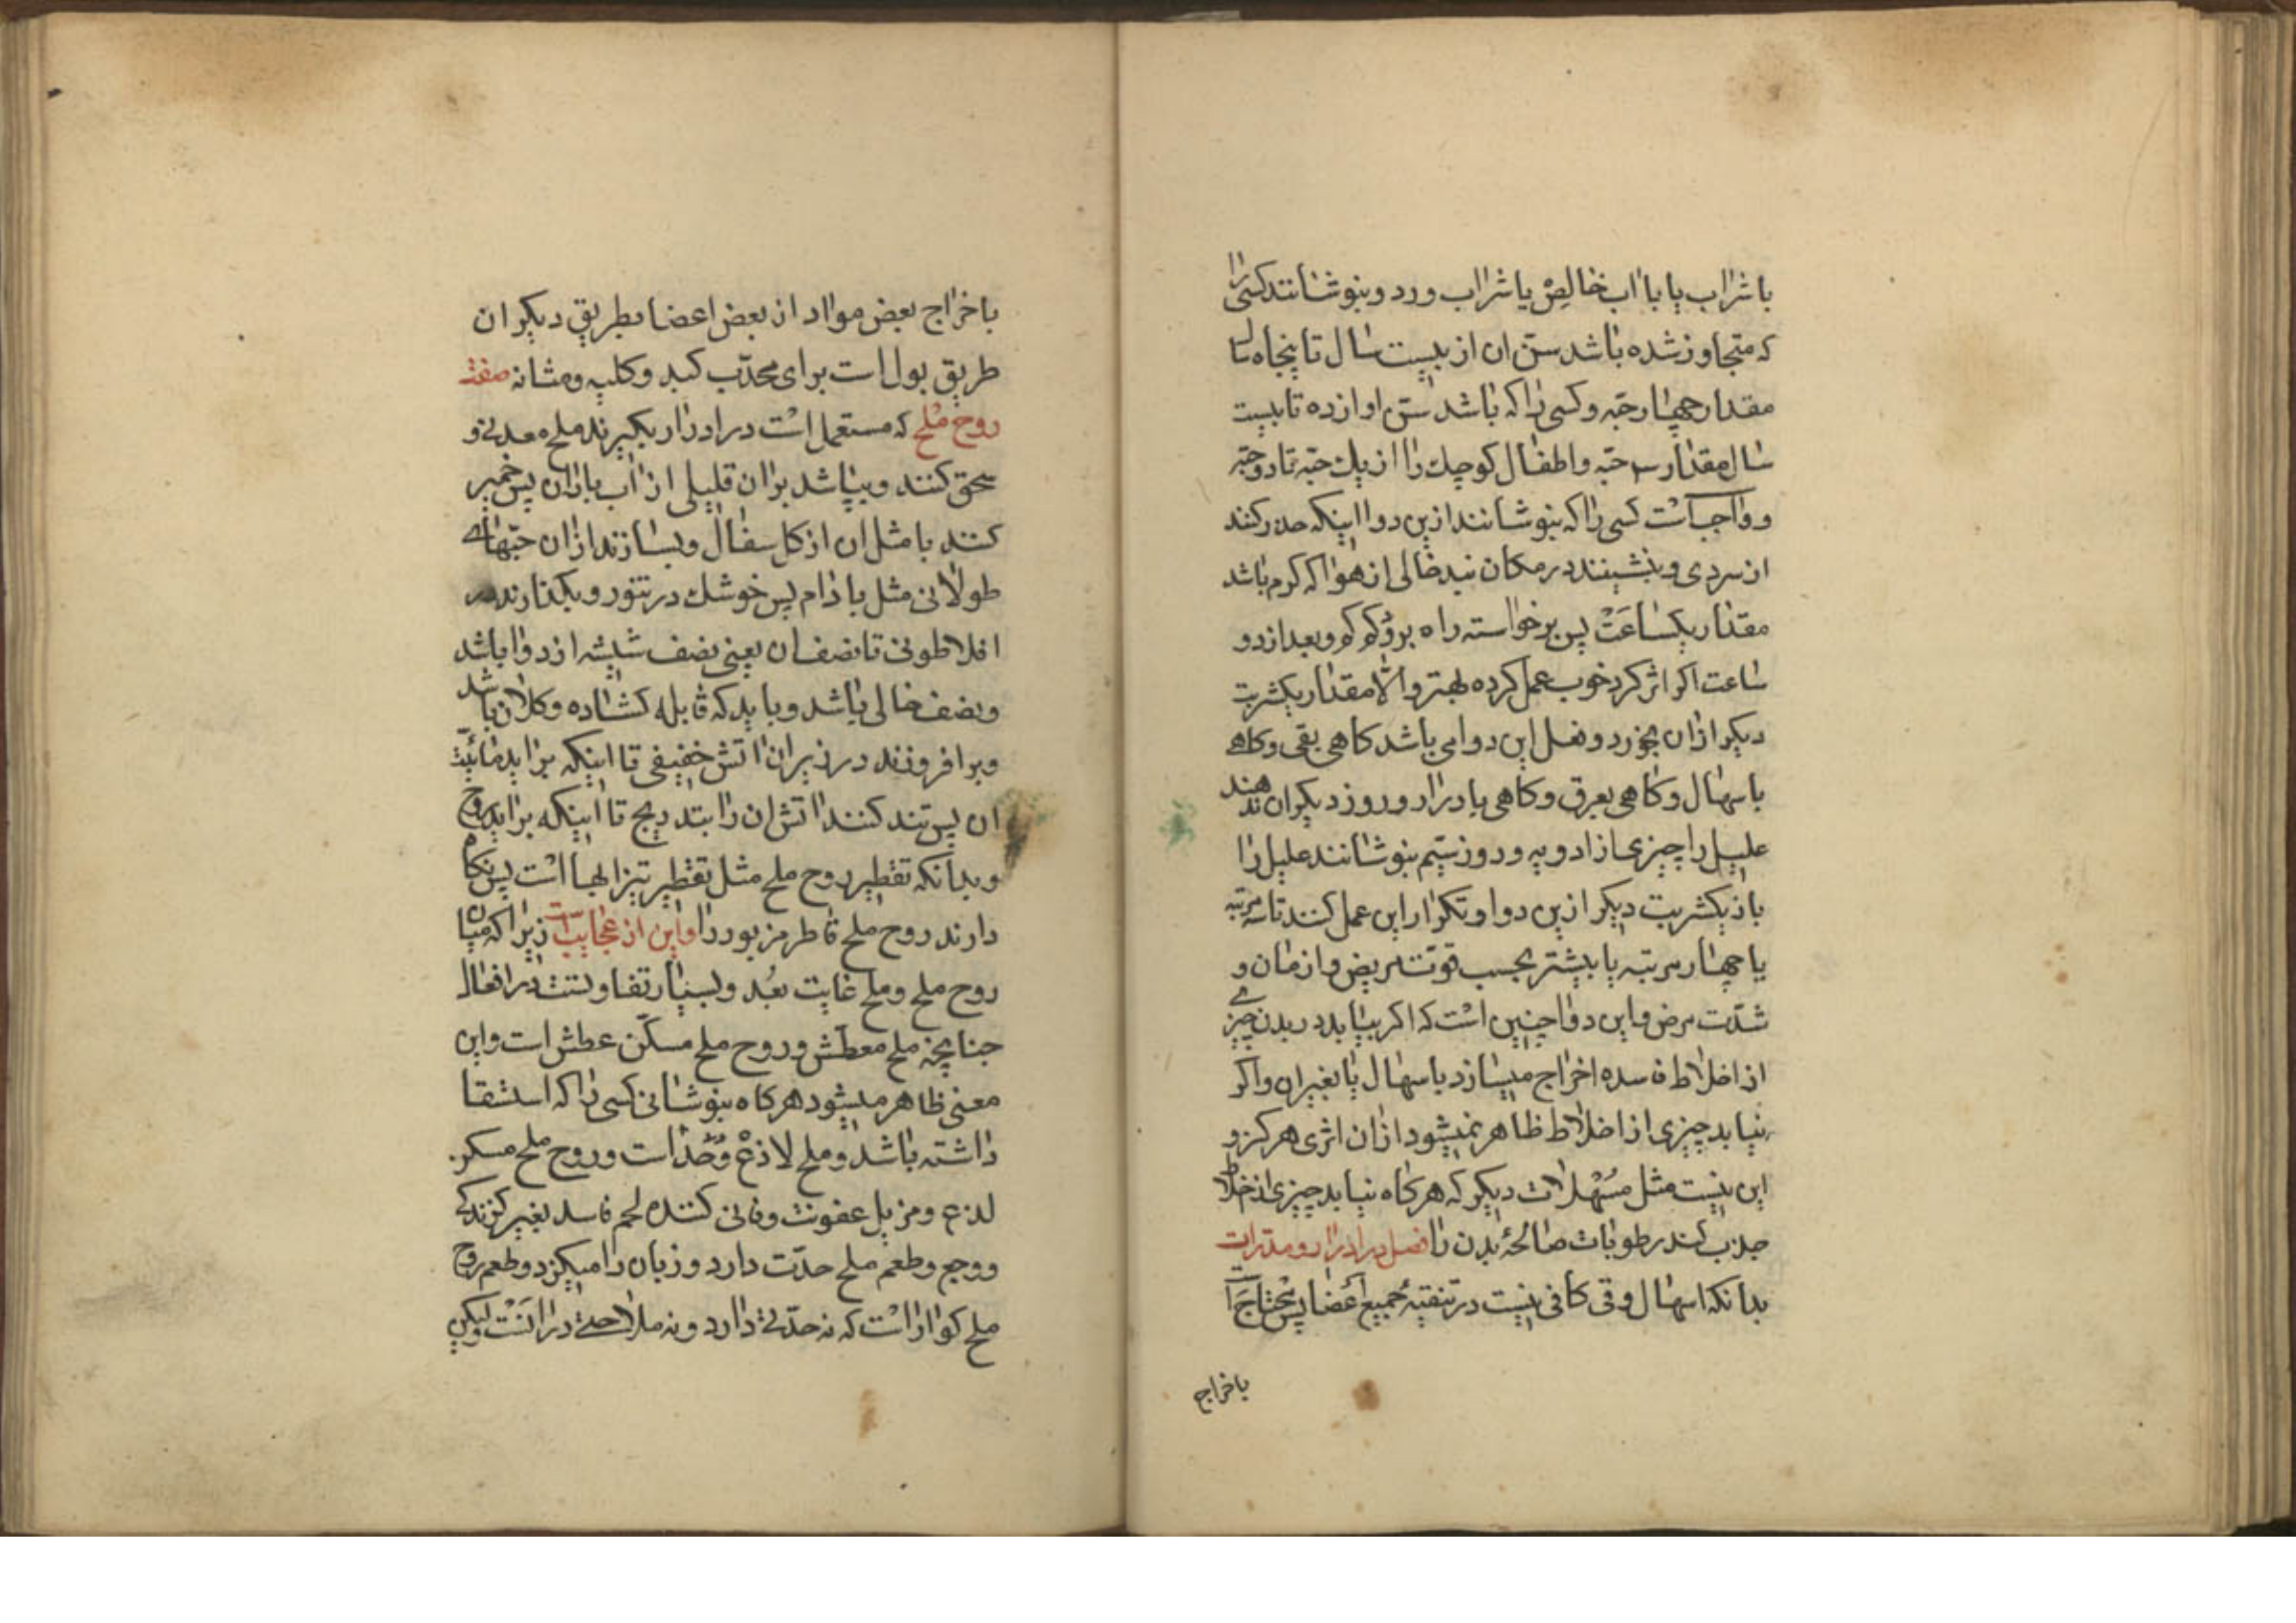 با شراب یا باآب خالص یا شراب ورد و بنوشانند کسی را
که متجاوز شده باشد سن ان از بیست سال تا پنجاه سال
مقدار چهار حبه و کسی را که باشد سن او از ده تا بیست
سال مقدار سه حبه و اطفال کوچك را از یك حبه تا دو حبه
و واجب است کسی را که بنوشانند ازین دوا اینکه حذر کنند
از سردی و بنشینند در مکان خالی از هوا که کرم باشد
مقدار یکساعت پس برخواسته راه برود و بعد از دو
ساعت اکر اثر کرد خوب عمل کرده بهتر والا مقدار یکشربت
دیکر ازان بخورد و فعل این دوا می باشد کاهی بقی و کاهی
باسهال و کاهی بعرق و کاهی بادرار و روز دیکران ندهند
علیل را چیزی از ادویه و روز سیم بنوشانند علیل را
باز یکشربت دیکر ازین دوا و تکرار این عمل کنند تا سه مرتبه
یا چهار مرتبه یا بیشتر بحسب قوت مریض و ازمان و
شدت مرض و این دوا چنین است که اکر بیابد در بدن چیزی
از اخلاط فاسده اخراج میسازد باسهال یا بغیر ان و اکر
نیابد چیزی از اخلاط ظاهر نمیشود ازان اثری هرکز و
این نیست مثل مسهلات دیکر که هرکاه نیابد چیزی از اخلاط
جذب کند رطوبات صالحهٔ بدن را فصل در ادرار و مدرات
بدانکه اسهال و قی کافی نیست در تنقیه جمیع اعضا پس محتاج است
باخراج
باخراج بعض مواد از بعض اعضا بطریق دیکر ان
طریق بول است برای محدب کبد و کلیه و مثانه صفت
روح ملح که مستعمل است در ادرار بکیرند ملح معدنی و
سحق کنند و بپاشد بران قلیلی از آب باران پس خمیر
کنند با مثل ان از کل سفال و بسازند ازان حبهای
طولانی مثل بادام پس خوشك در تنور و بکذارند در
افلاطونی تا نصف ان یعنی نصف شیشه از دوا باشد
و نصف خالی باشد و باید که قابله کشاده و کلان باشد
و برافروزند در زیر ان اتش خفیفی تا اینکه براید مائیت
ان پس تند کنند اتش ان را بتدریج تا اینکه براید روح
و بدانکه تقطیر روح ملح مثل تقطیر تیزابها است پس نکاه
دارند روح ملح قاطر مزبور را و این از عجایب است زیرا که میان
روح ملح و ملح غایت بعد و بسیار تفاوتست در افعال
چنانچه ملح معطش و روح ملح مسکن عطش است و این
معنی ظاهر میشود هرکاه بنوشانی کسی را که استسقا
داشته باشد و ملح لاذع و حاد است و روح ملح مسکن
لذع و مزیل عفونت و فانی کننده لحم فاسد بغیر کزندکی
و وجع و طعم ملح حدت دارد و زبان را میکزد و طعم روح
ملح کوارا است که نه حدتی دارد و نه ملاحتی در انست ولیکن